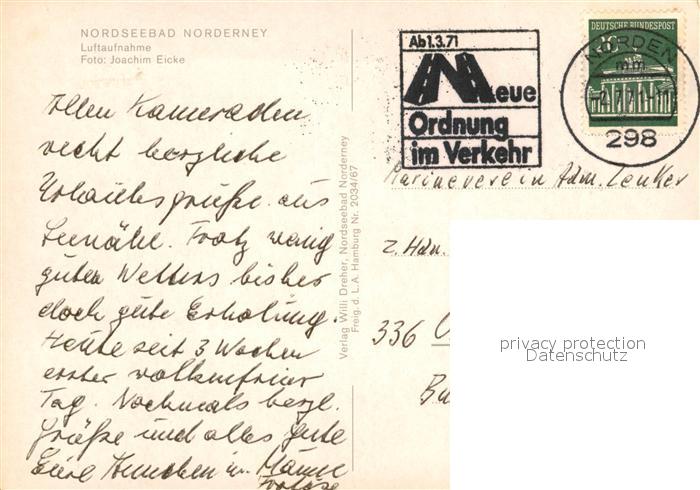 NORDSEEBAD NORDERNEY
Luftaufnahme
Foto: Joachim Eicke
Allen Kameraden
recht herzliche
Urlaubsgrüße aus
Seenähe. Trotz wenig
guten Wetters bisher
doch gute Erholung.
Heute seit 3 Wochen
erster wolkenfreier
Tag. Nochmals herzl.
Grüße und alles Gute
Eure Ännchen u.
Verlag Willi Dreher, Nordseebad Norderney
Freig. d. L.A. Hamburg Nr. 2034/67
Ab 1.3.71
Neue
Ordnung
im Verkehr
DEUTSCHE BUNDESPOST
NORDEN
298
Marineverein Adm.
z. Hdn.
336
privacy protection
Datenschutz